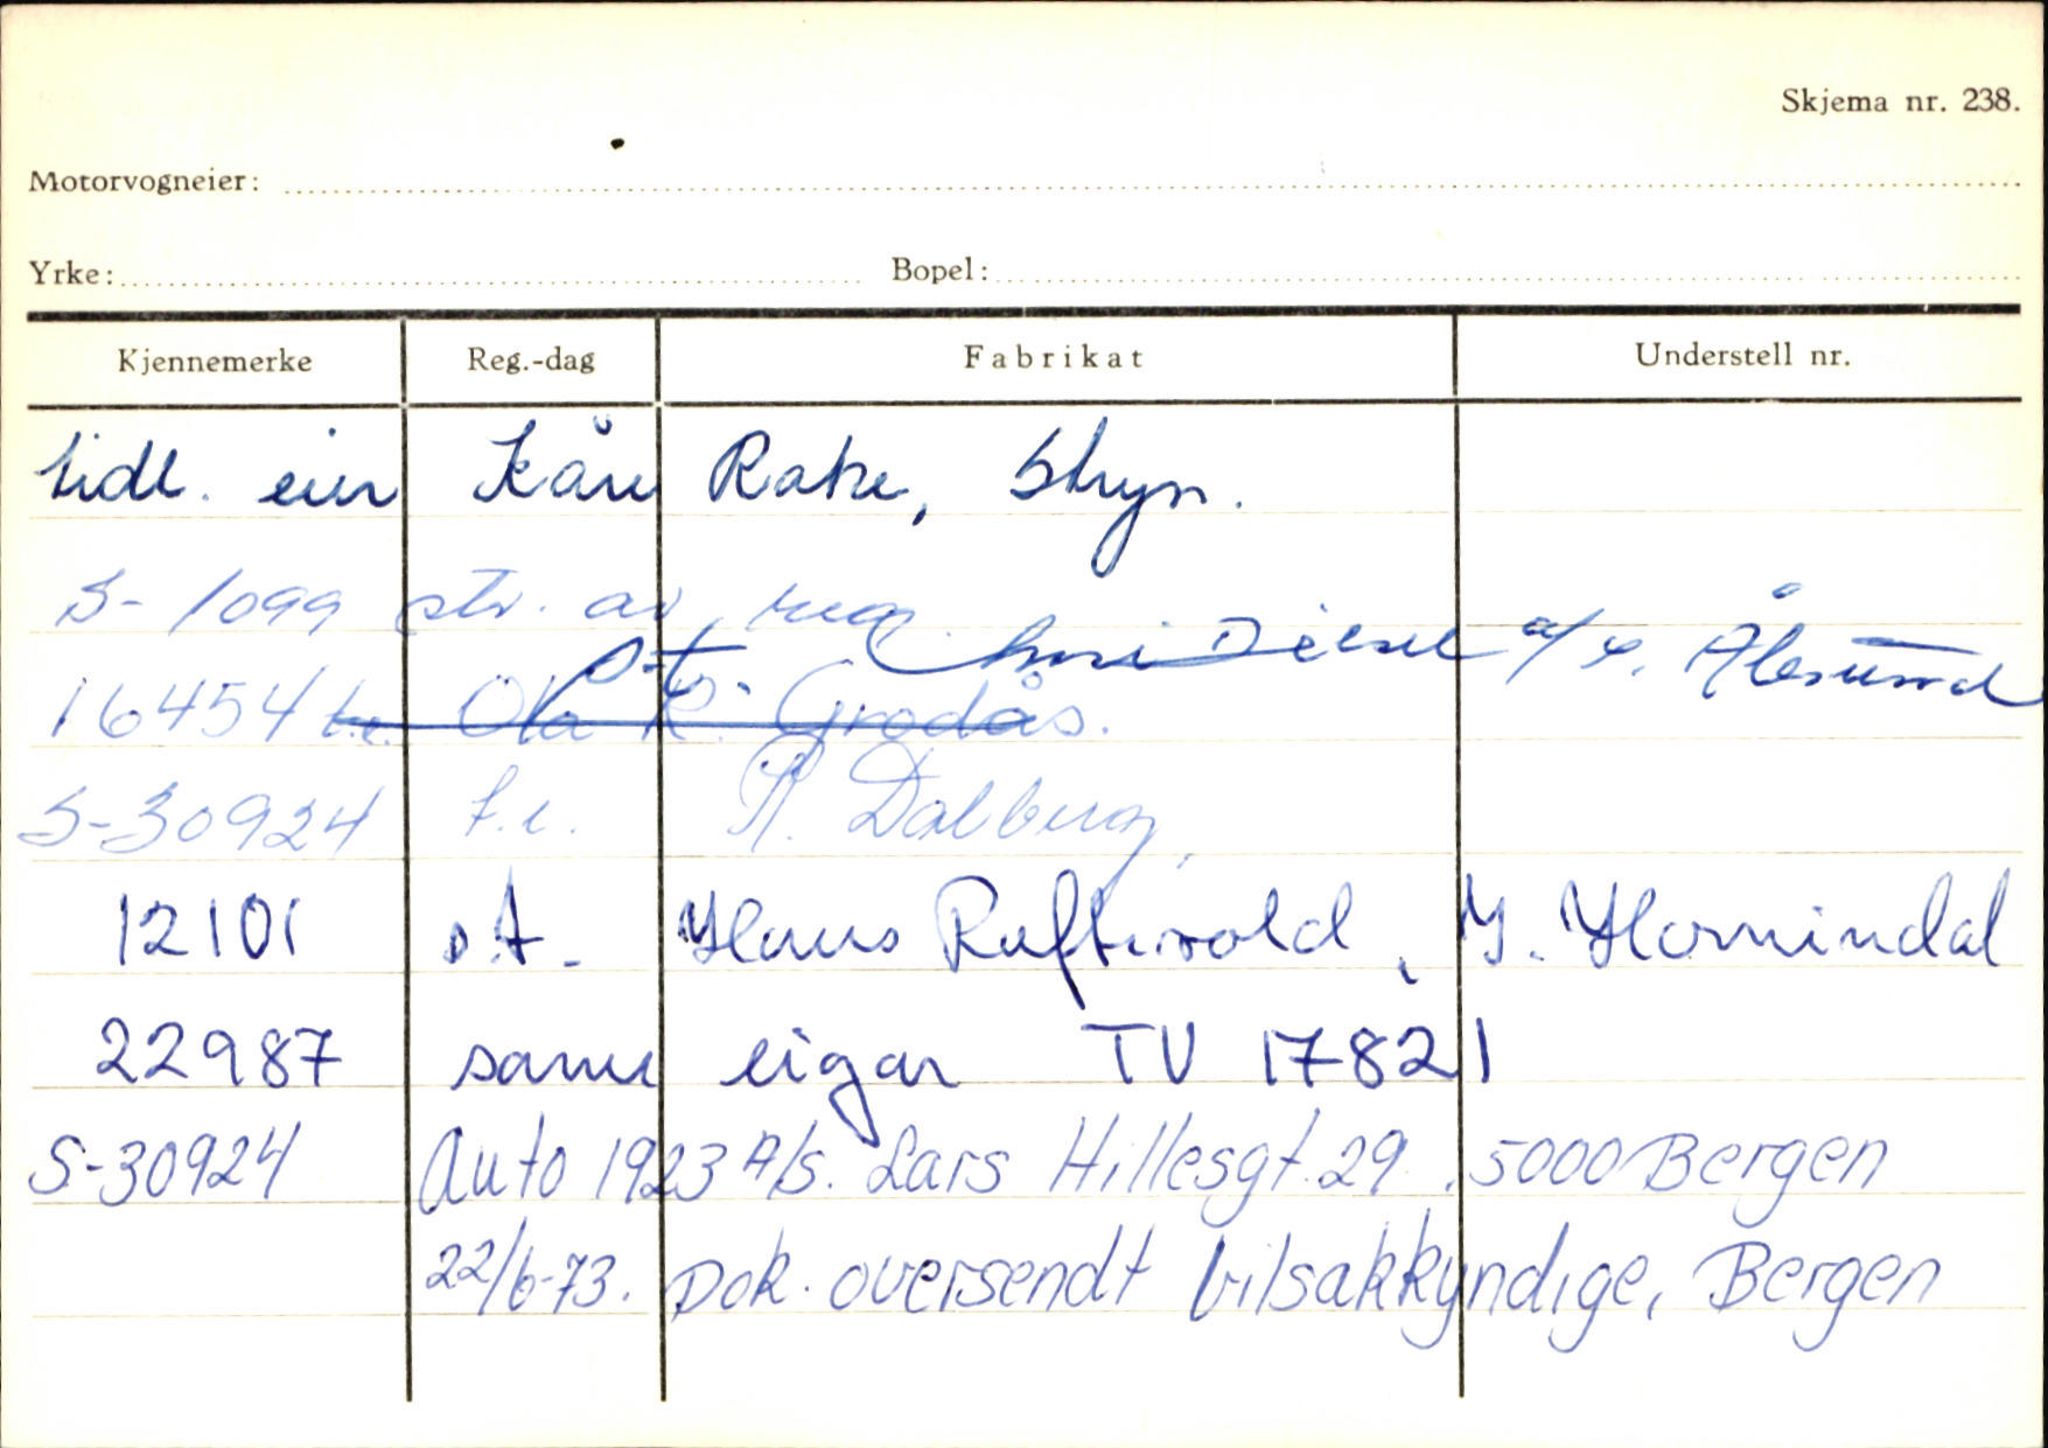 Skjema nr. 238.
Motorvogneier:
Yrke: Bopel:
Kjennemerke Reg.-dag Fabrikat Understell nr.
tidl. eier Kåre Rake, Stryn.
S-1099 str. av reg
o.t. Diesel a/s. Ålesund
16454 t.e. Ola R. Grodås.
S-30924 f.e. R. Dalberg,
12101 o.t. Hans Raftevold, N. Hornindal
22987 same eigar TV 17821
S-30924 Auto 1923 A/S. Lars Hillesgt. 29. 5000 Bergen
22/6-73. Dok. oversendt bilsakkyndige, Bergen